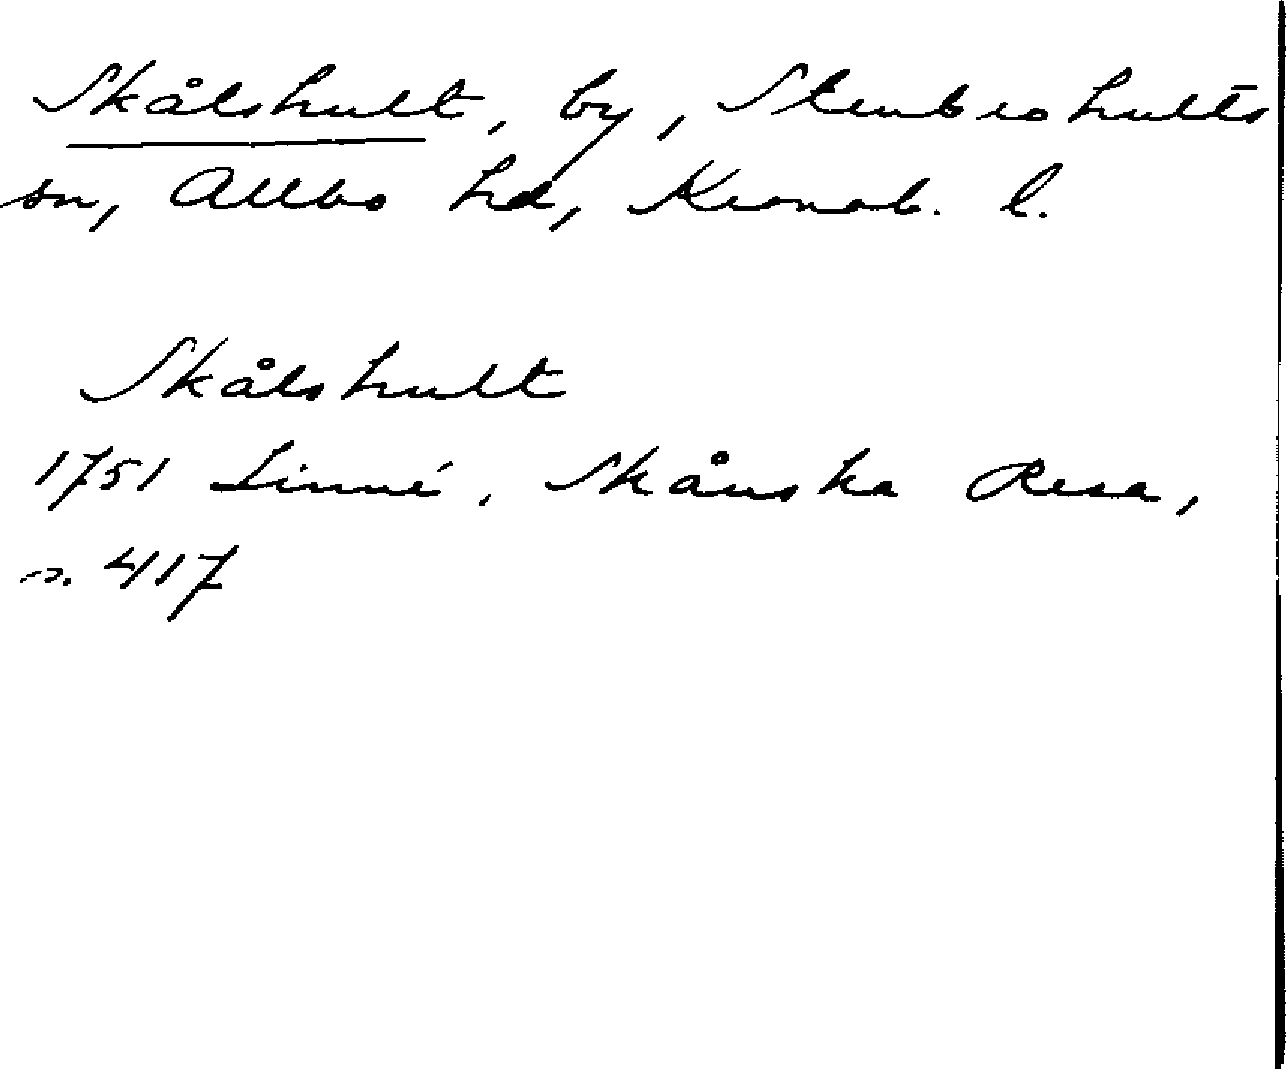 Skålshult, by, Stenbrohults
sn, Allbo hd, Kronob. l.
Skålshult
1751 Linné, Skånska Resa,
s. 417